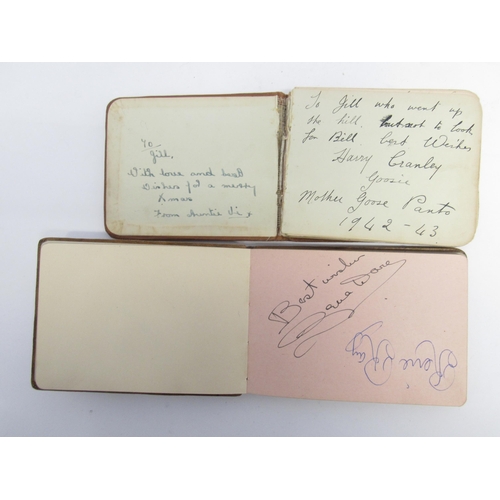 To -
Jill,
With love and best
wishes for a merry
Xmas
From Auntie Vi.
To Jill who went up
the hill, but not to look
for Bill. Best Wishes
Harry Cranley
Goosie
Mother Goose Panto
1942-43
Best wishes
Rene Ray